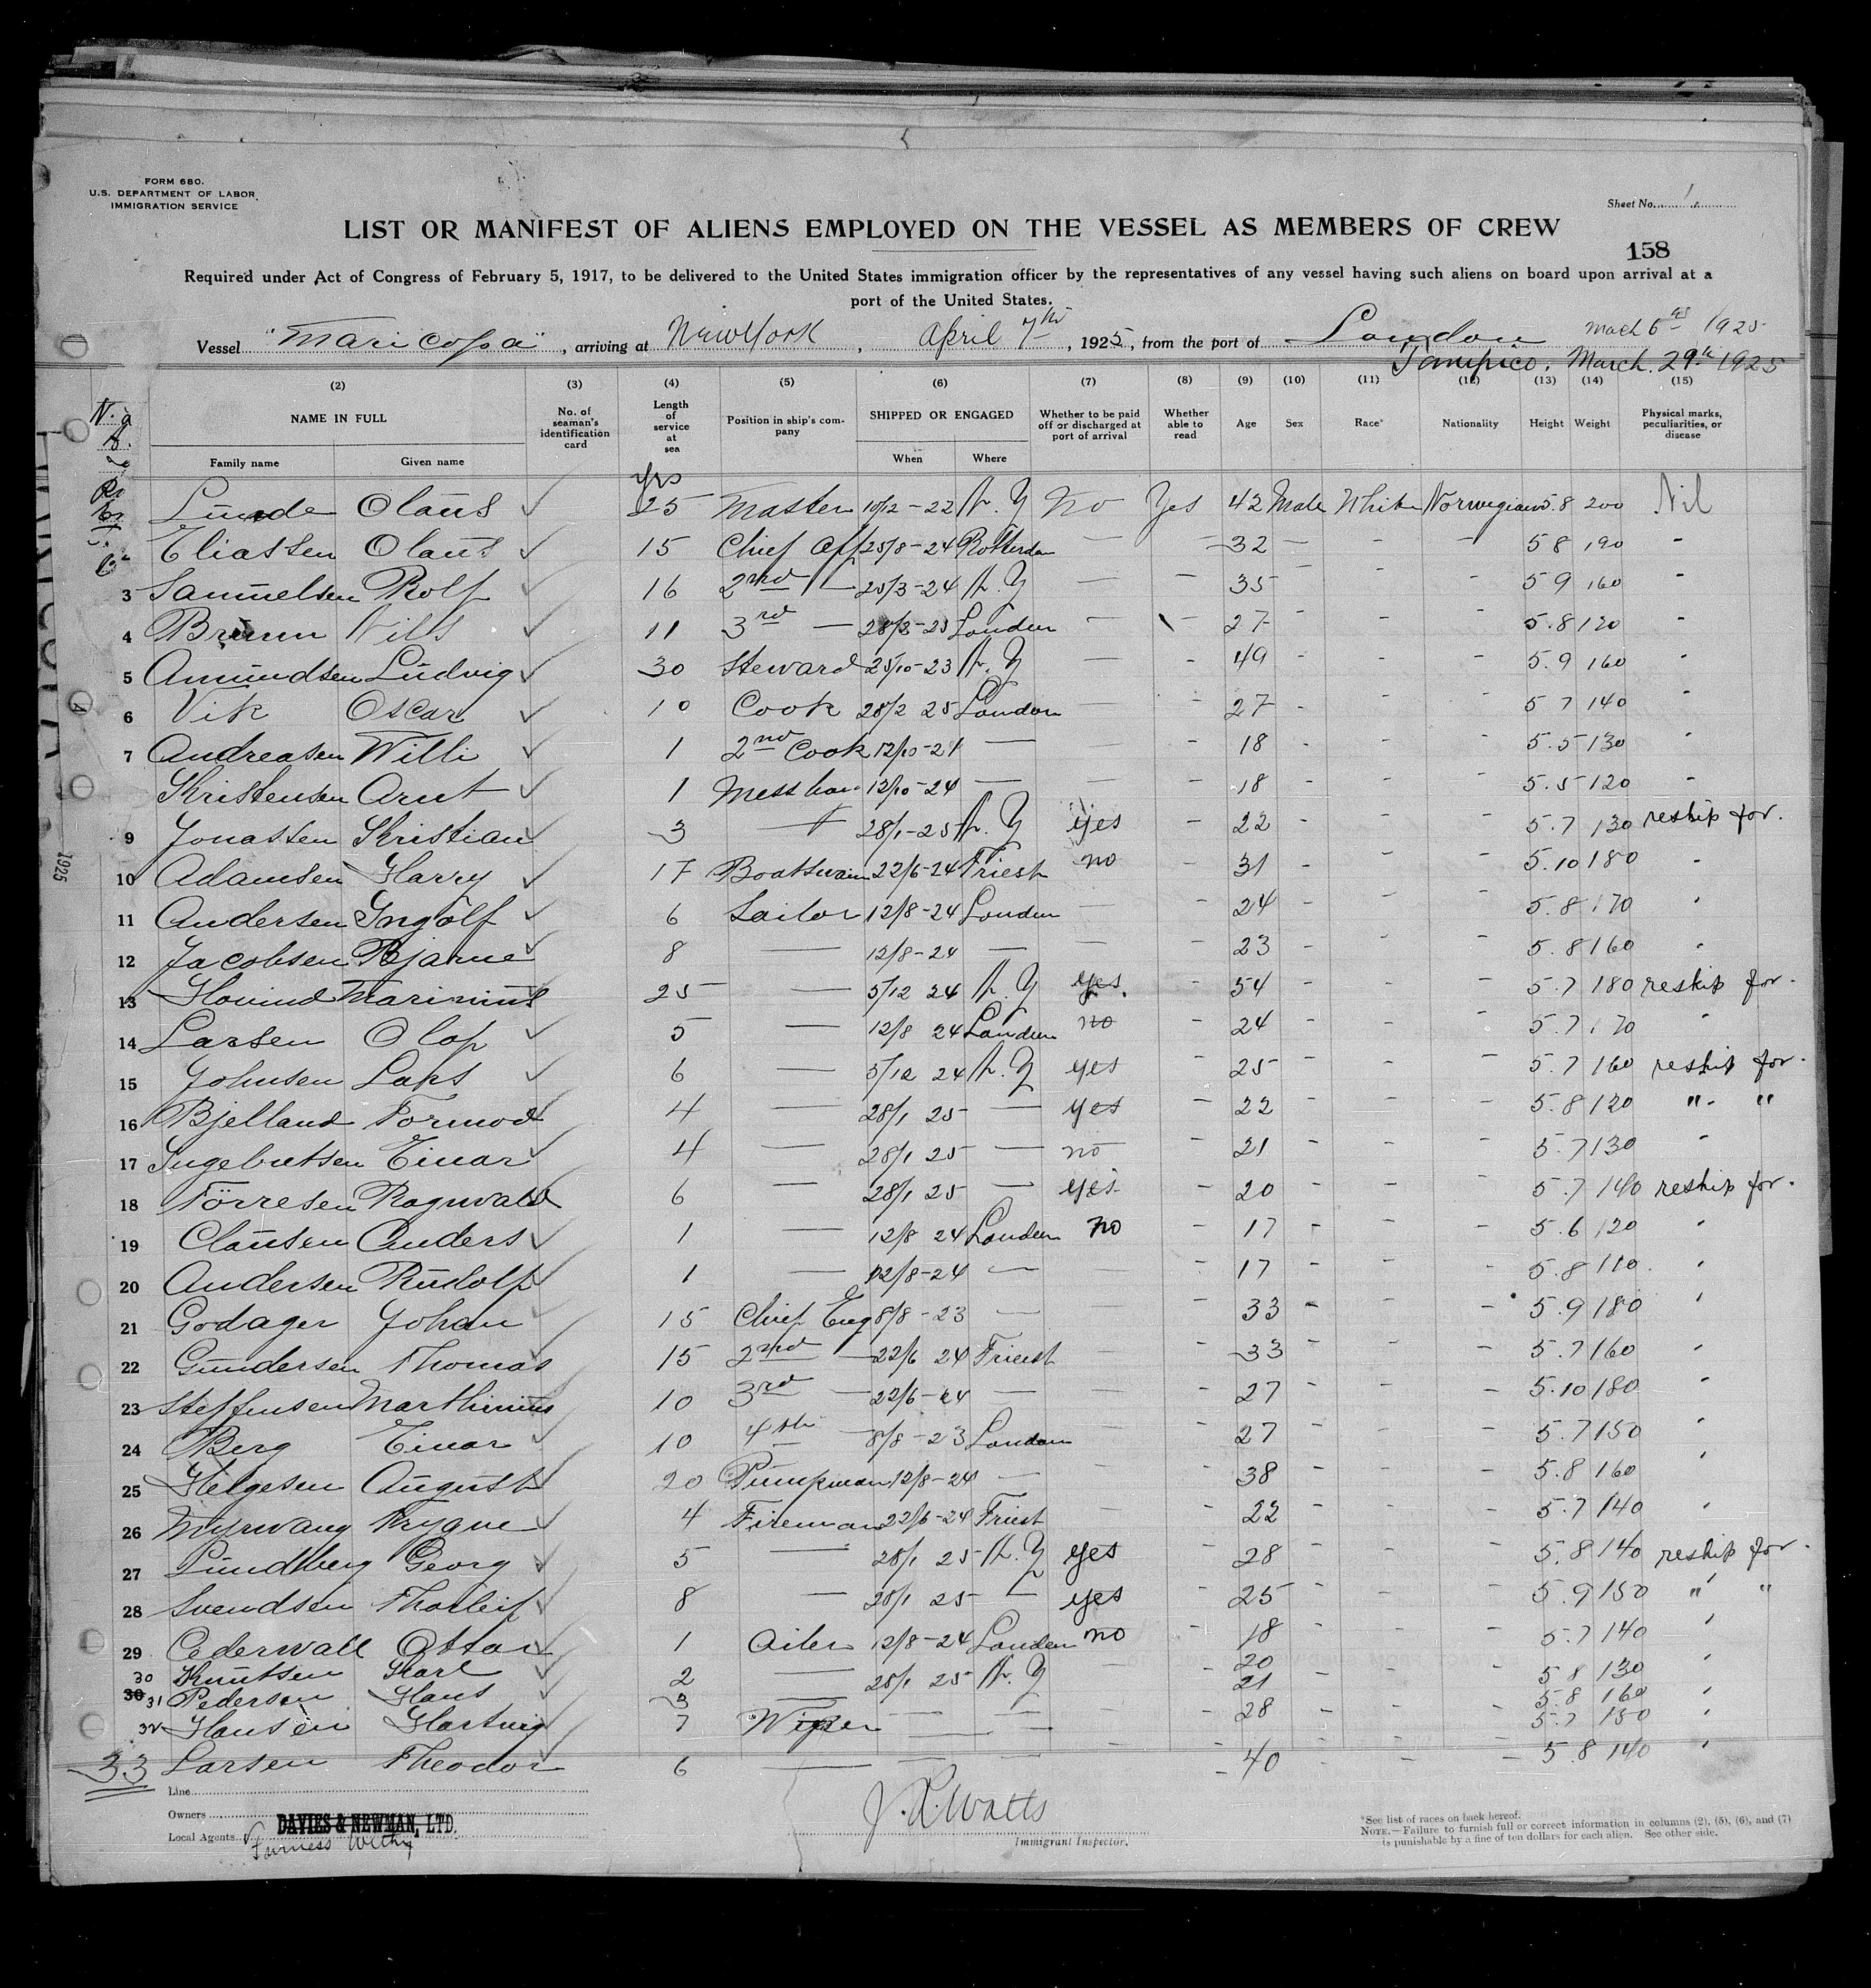 FORM 680.
U.S. DEPARTMENT OF LABOR
IMMIGRATION SERVICE
Sheet No. 1
LIST OR MANIFEST OF ALIENS EMPLOYED ON THE VESSEL AS MEMBERS OF CREW
158
Required under Act of Congress of February 5, 1917, to be delivered to the United States immigration officer by the representatives of any vessel having such aliens on board upon arrival at a
port of the United States.
Vessel "Maricopa", arriving at New York, April 7th, 1925, from the port of London March 6th 1925
Tampico. March. 29th 1925
(2) (3) (4) (5) (6) (7) (8) (9) (10) (11) (12) (13) (14) (15)
NAME IN FULL No. of seaman's identification card Length of service at sea Position in ship's company SHIPPED OR ENGAGED Whether to be paid off or discharged at port of arrival Whether able to read Age Sex Race* Nationality Height Weight Physical marks, peculiarities, or disease
Family name Given name When Where
yrs
Lunde Olaus ✓ 25 Master 10/12-22 N.Y No Yes 42 Male White Norwegian 5.8 200 Nil
Eliassen Olaus ✓ 15 Chief Off 25/8-24 Rotterdam — — 32 - - - 5 8 190 -
3 Samuelsen Rolf ✓ 16 2nd — 25/3-24 N.Y — - 35 - - - 5 9 160 -
4 Bruun Nils ✓ 11 3rd — 28/2-25 London — - 27 - - - 5.8 120 -
5 Amundsen Ludvig ✓ 30 Steward 25/10-23 N.Y — - 49 - - - 5.9 160 -
6 Vik Oscar ✓ 10 Cook 28/2 25 London — - 27 - - - 5 7 140 -
7 Andreasen Willi ✓ 1 2nd Cook 12/10-24 — — - 18 - - - 5.5 130 -
Kristensen Arnt ✓ 1 Mess boy 12/10-24 — — - 18 - - - 5.5 120 -
9 Jonassen Kristian ✓ 3 — 28/1-25 N.Y yes - 22 - - - 5.7 130 reship for.
10 Adamsen Harry ✓ 17 Boatswain 22/6-24 Triest no - 31 - - - 5.10 180 -
11 Andersen Ingolf ✓ 6 Sailor 12/8-24 London — - 24 - - - 5.8 170 -
12 Jacobsen Bjarne ✓ 8 — 12/8-24 — — - 23 - - - 5.8 160 -
13 Hovind Marinius ✓ 25 — 5/12 24 N.Y yes. - 54 - - - 5.7 180 reship for.
14 Larsen Olaf ✓ 5 — 12/8 24 London no - 24 - - - 5.7 170 -
15 Johnsen Lars ✓ 6 — 5/12 24 N.Y yes - 25 - - - 5.7 160 reship for.
16 Bjelland Tormod ✓ 4 — 28/1 25 — yes - 22 - - - 5.8 120 " "
17 Ingebretsen Einar ✓ 4 — 28/1 25 — no - 21 - - - 5.7 130 -
18 Törresen Ragnwald ✓ 6 — 28/1 25 — yes - 20 - - - 5.7 140 reship for.
19 Clausen Anders ✓ 1 — 12/8 24 London no - 17 - - - 5.6 120 -
20 Andersen Rudolf ✓ 1 — 12/8-24 — — - 17 - - - 5.8 110 -
21 Godager Johan ✓ 15 Chief Eng 8/8-23 — — - 33 - - - 5.9 180 -
22 Gundersen Thomas ✓ 15 2nd — 22/6 24 Triest — - 33 - - - 5.7 160 -
23 Steffensen Marthinius ✓ 10 3rd — 22/6-24 — — - 27 - - - 5.10 180 -
24 Berg Einar ✓ 10 4th — 8/8-23 London — - 27 - - - 5.7 150 -
25 Helgesen August ✓ 20 Pumpman 12/8-24 — — - 38 - - - 5.8 160 -
26 Myrwang Trygve ✓ 4 Fireman 22/6-24 Triest — - 22 - - - 5.7 140 -
27 Lundberg Georg ✓ 5 — 28/1 25 N.Y yes - 28 - - - 5.8 140 reship for.
28 Svendsen Thorleif ✓ 8 — 28/1 25 — yes - 25 - - - 5.9 150 " "
29 Cederwall Ottar ✓ 1 Oiler 12/8-24 London no - 18 - - - 5.7 140 -
30 Knutsen Karl ✓ 2 — 28/1 25 N.Y — - 20 - - - 5 8 130 -
31 Pedersen Hans ✓ 3 — — — — - 21 - - - 5.8 160 -
32 Hansen Hartvig ✓ 7 Wiper — — — - 28 - - - 5.7 150 -
33 Larsen Theodor ✓ 6 — — — — - 40 - - - 5.8 140 -
Line
Owners
Local Agents DAVIES & NEWMAN, LTD.
Furness Withy
J. R. Watts
Immigrant Inspector.
*See list of races on back hereof.
NOTE.—Failure to furnish full or correct information in columns (2), (5), (6), and (7)
is punishable by a fine of ten dollars for each alien. See other side.
1925